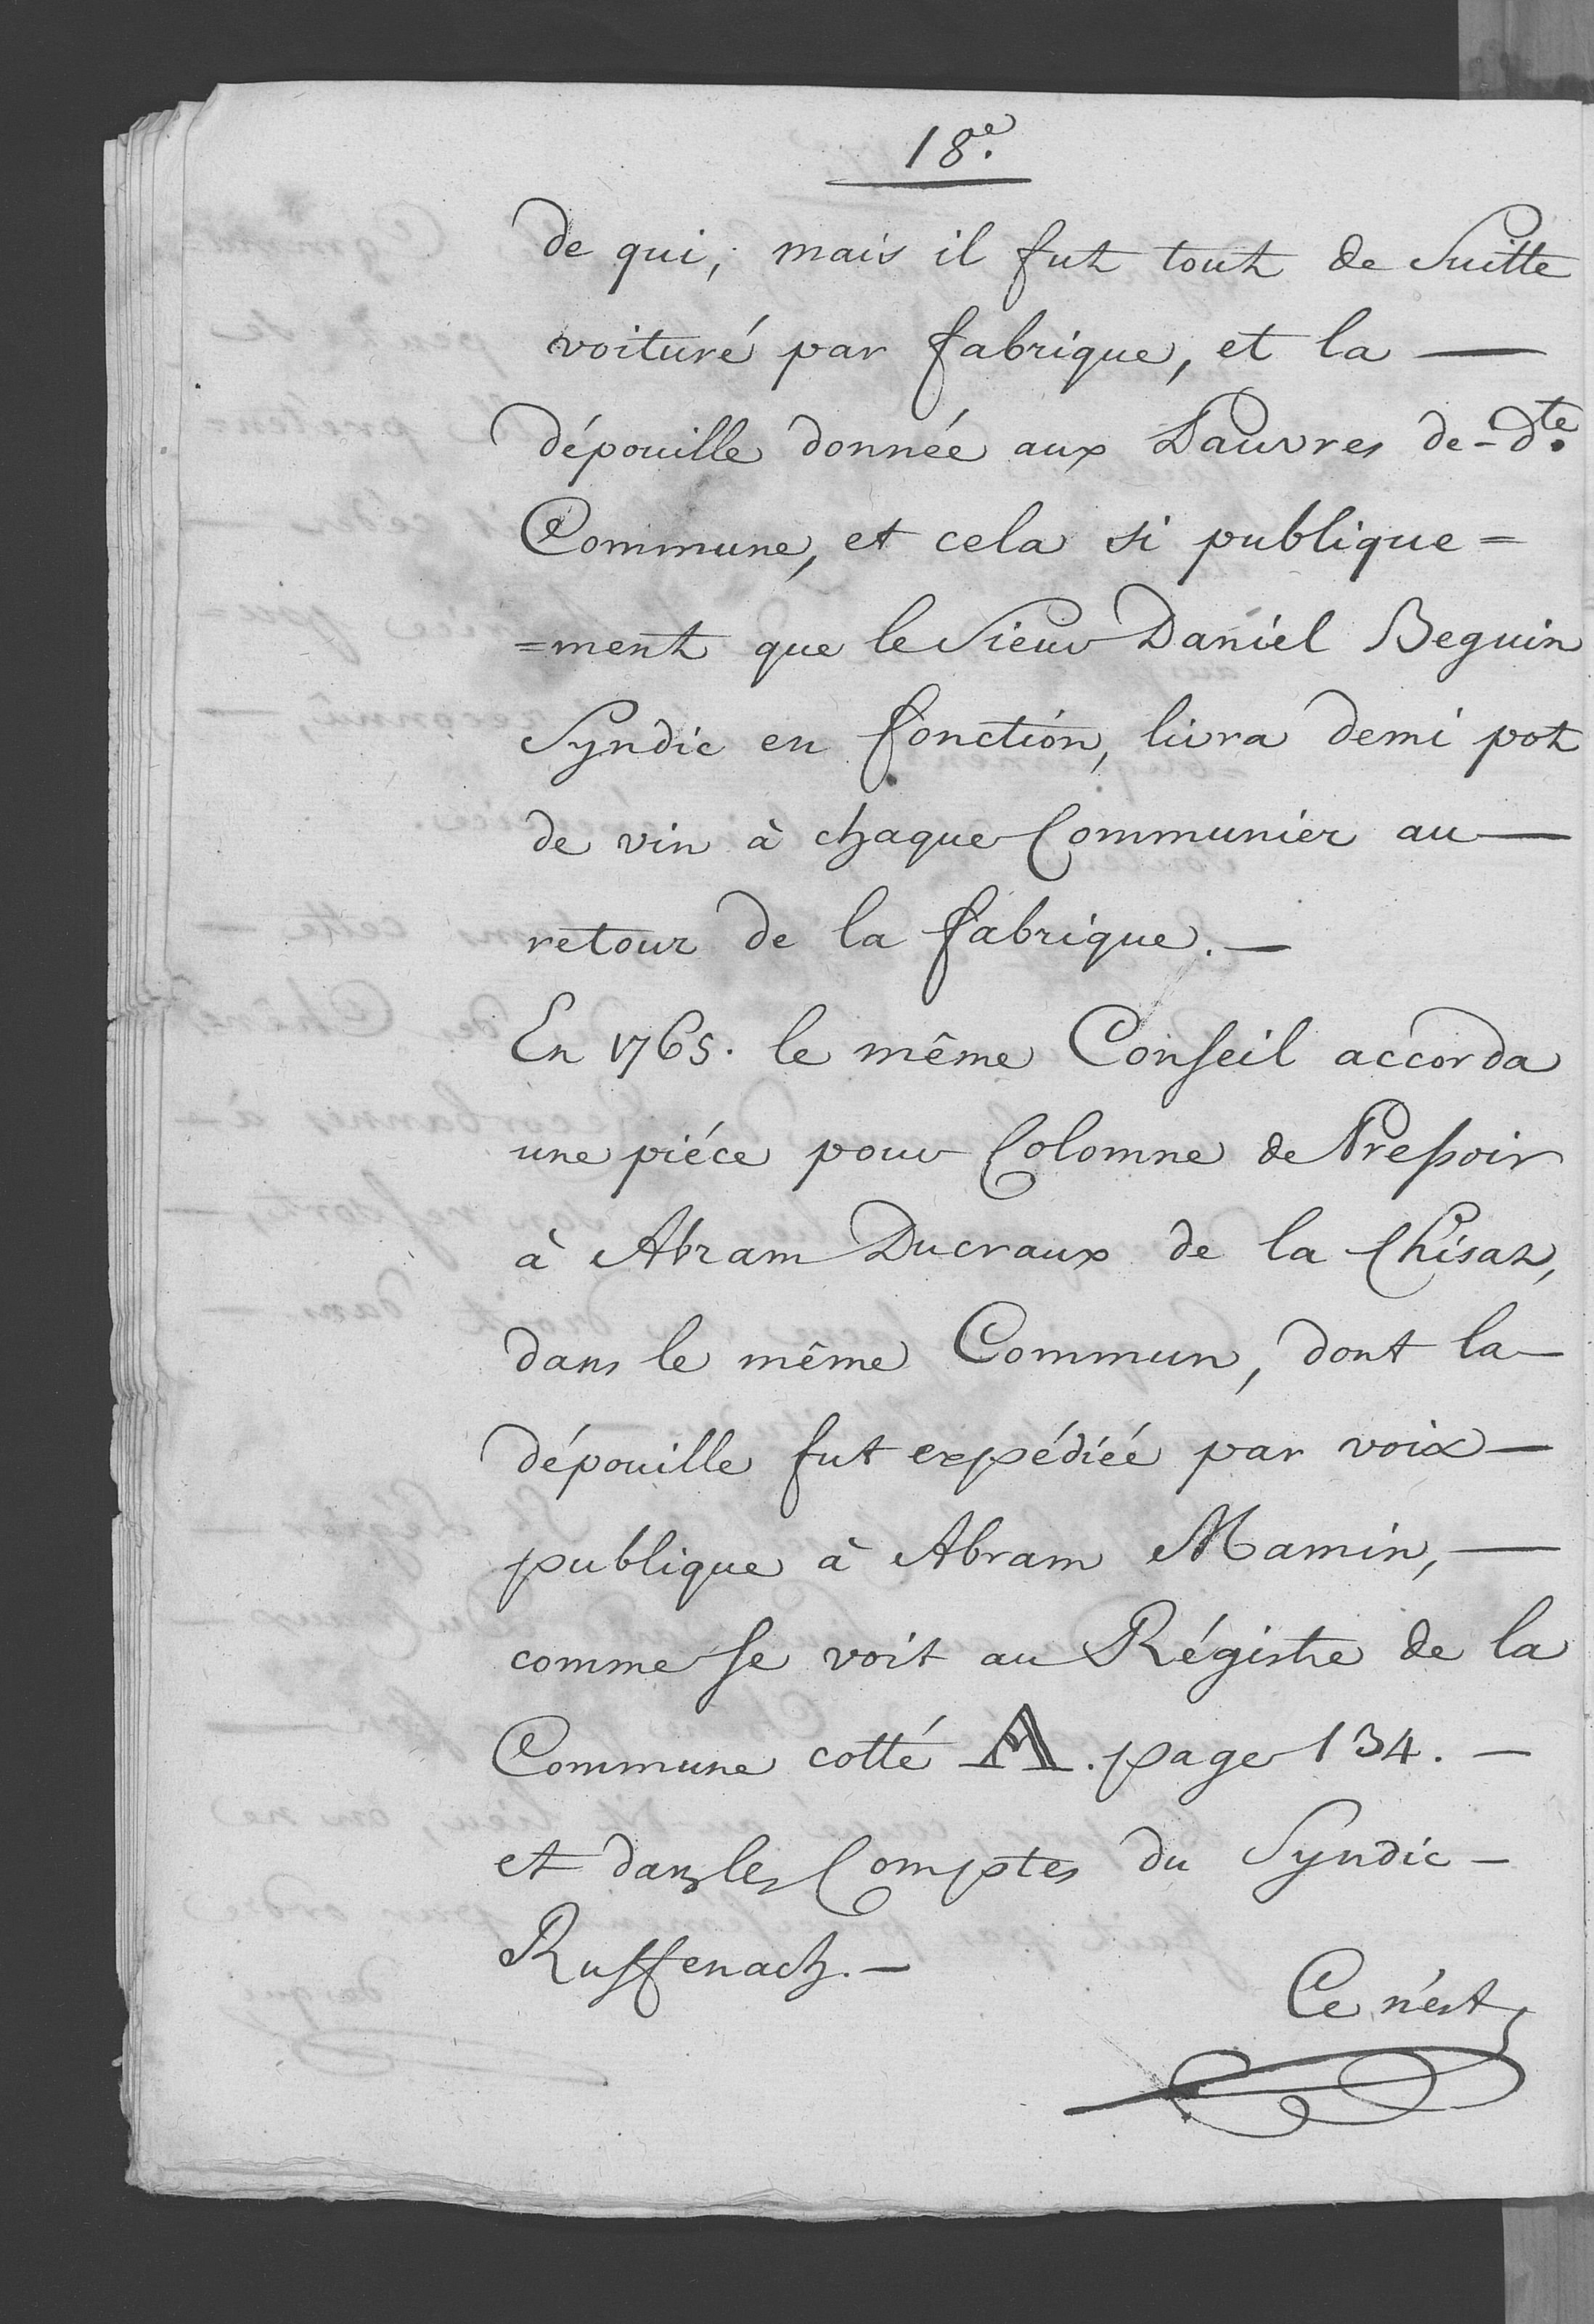 18.e
de qui, mais il fut tout de Suitte
voituré par fabrique, et la —
dépouille donnée aux Pauvres de - d.te
Commune, et cela si publique=
=ment que le Sieur Daniel Beguin
Syndic en fonction, livra demi pot
de vin à chaque Communier au —
retour de la fabrique. —
En 1765. le même Conseil accorda
une piéce pour Colomne de Pressoir
à Abram Ducraux de la Chisaz,
dans le même Commun, dont la —
dépouille fut expédiéé par voix —
publique à Abram Mamin, —
comme se voit au Régistre de la
Commune cotté A. page 134. —
et dans les Comptes du Syndic —
Ruffenach. —
Ce n'est